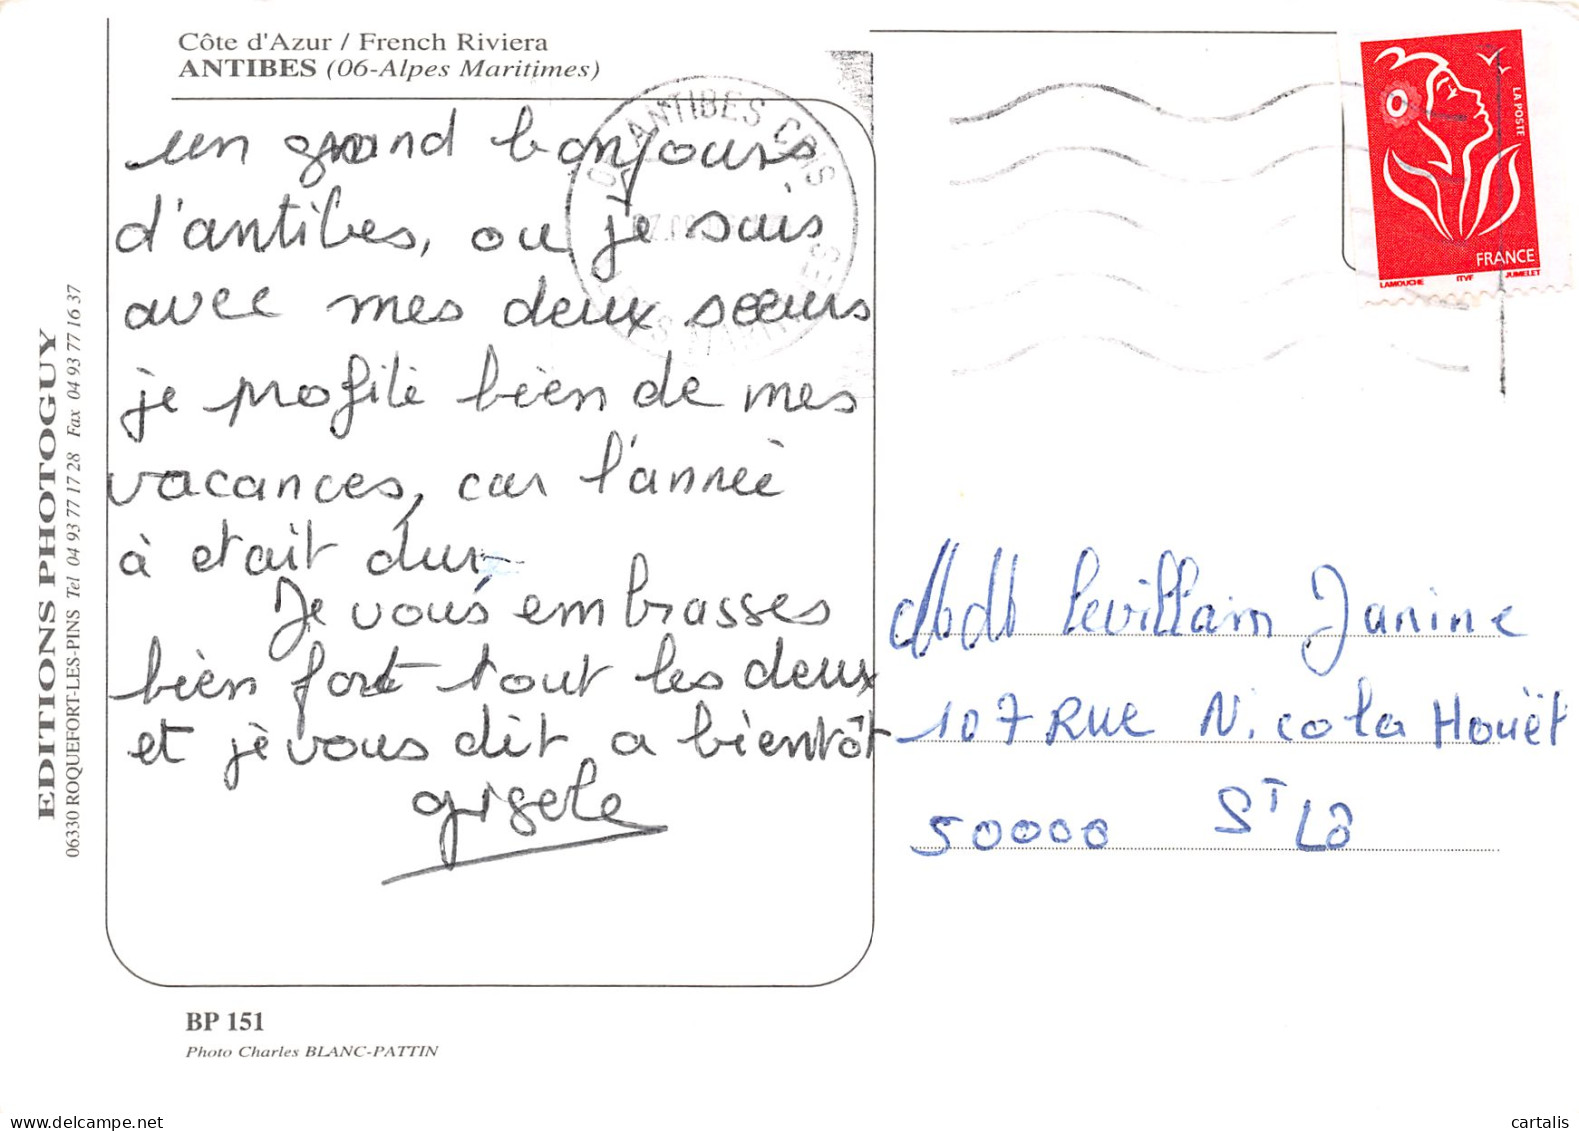 Côte d'Azur / French Riviera
ANTIBES (06-Alpes Maritimes)
un grand bonjours
d'antibes, ou je suis
avec mes deux soeurs
je profite bien de mes
vacances, car l'année
à etait dur.
Je vous embrasses
bien fort tout les deux
et je vous dit a bientôt
gisele
BP 151
Photo Charles BLANC-PATTIN
EDITIONS PHOTOGUY
06330 ROQUEFORT-LES-PINS Tel 04 93 77 17 28 Fax 04 93 77 16 37
ANTIBES CDIS
LA POSTE
FRANCE
LAMOUCHE ITVF JUMELET
levillain Janine
107 Rue Nicola Houët
50000 ST Lô
delcampe.net
cartalis